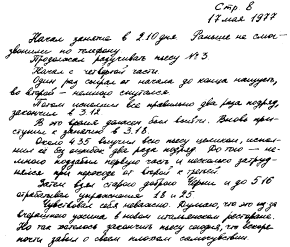 Стр. 8
17 мая 1977
Начал занятие в 2.10 дня. Раньше не смог—
звонили по телефону
Продолжал разучивать пьесу №3.
Начал с четвертой части.
Один раз сыграл от начала до конца наизусть,
во второй — немного сбился.
Потом исполнил все правильно два раза подряд,
закончил в 3.12
В это время должен был выйти. Вновь прис-
тупил к занятию в 3.18.
Около 4.35 выучил всю пьесу целиком, испол-
нил ее без ошибок, два раза подряд. До того — не-
много подзабыл первую часть и несколько затруд-
нялся при переходе от второй к третьей
Затем взял старого доброго Черни и до 5.16
отрабатывал упражнения 18 и 25
Чувствовал себя неважно. Думаю, что это из-за
вчерашнего ужина в новом итальянском ресторане.
Но так хотелось закончить пьесу сегодня, что вскоре
почти забыл о своем плохом самочувствии.